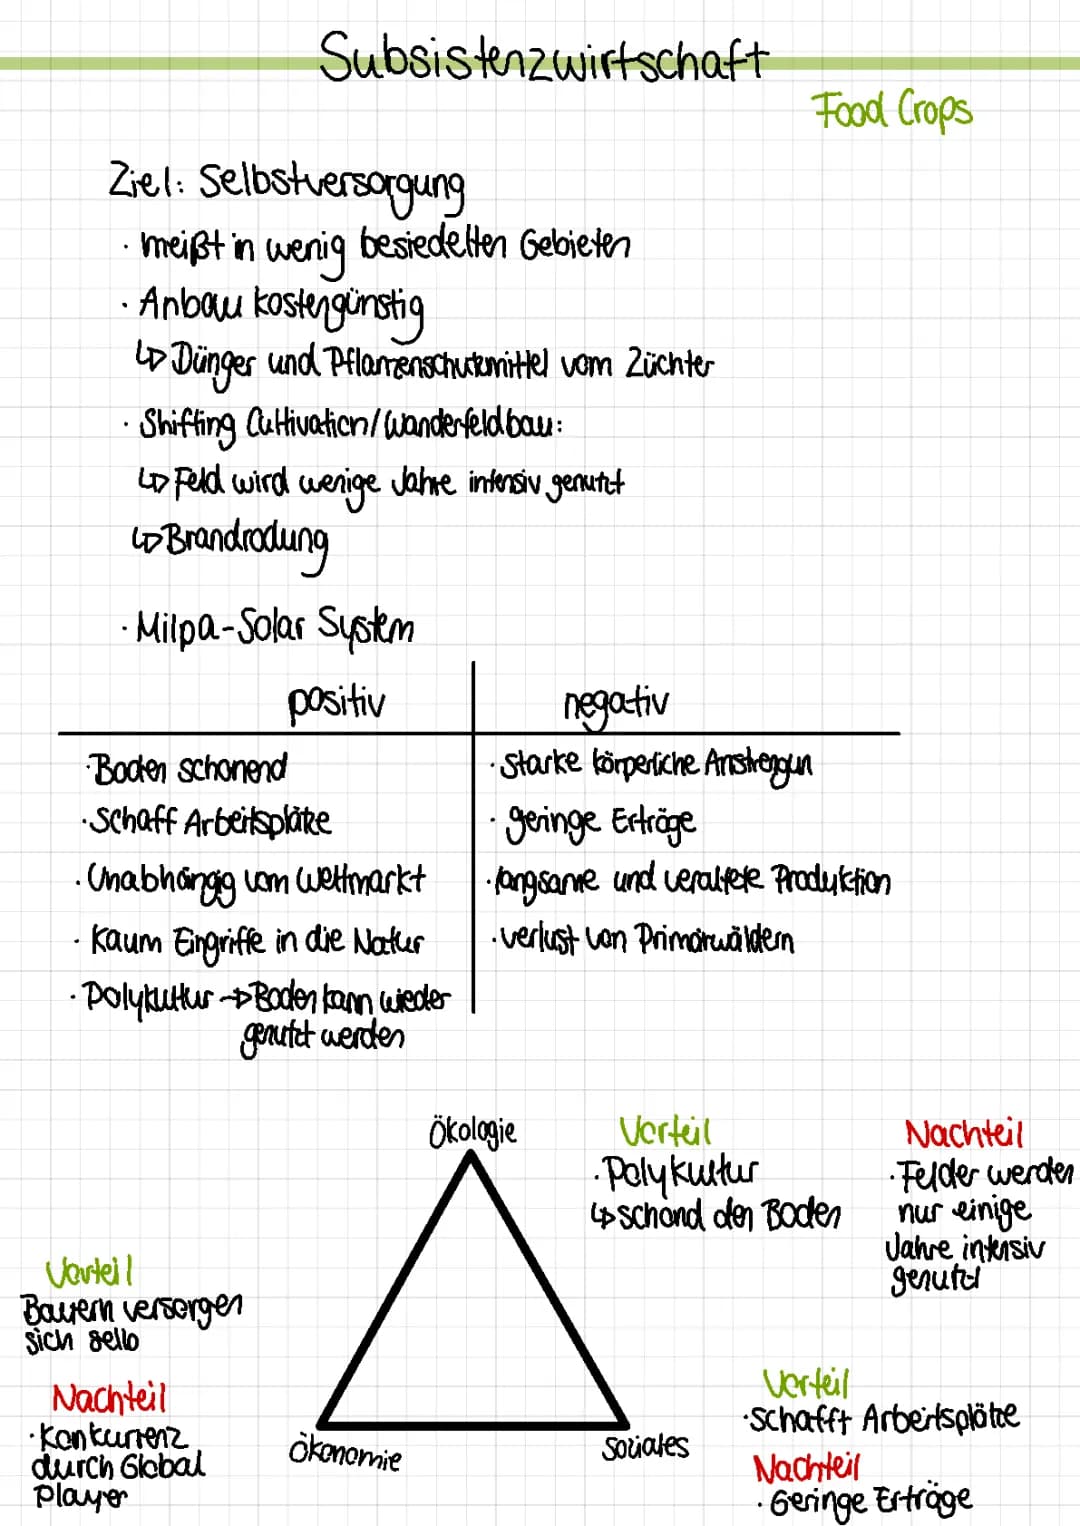 Subsistenzwirtschaft
Food Crops
Ziel: Selbstversorgung
· meißt in wenig besiedelten Gebieten
· Anbau kostengünstig
↳ Dünger und Pflanzenschutzmittel vom Züchter
· Shifting Cultivation/Wanderfeldbau:
↳ Feld wird wenige Jahre intensiv genutzt
↳ Brandrodung
· Milpa-Solar System
positiv
negativ
· Boden schonend
· Schaff Arbeitsplätze
· Unabhängig vom Weltmarkt
· Kaum Eingriffe in die Natur
· Polykultur → Boden kann wieder
genutzt werden
· Starke körperliche Anstrengun
· geringe Erträge
· langsame und veraltete Produktion
· verlust von Primärwäldern
Ökologie
Vorteil
· Polykultur
↳ schond den Boden
Nachteil
· Felder werden
nur einige
Jahre intensiv
genutzt
Vorteil
Bauern versorgen
sich selb
Nachteil
· Konkurrenz
durch Global
Player
Ökonomie
Soziales
Vorteil
· Schafft Arbeitsplätze
Nachteil
· Geringe Erträge